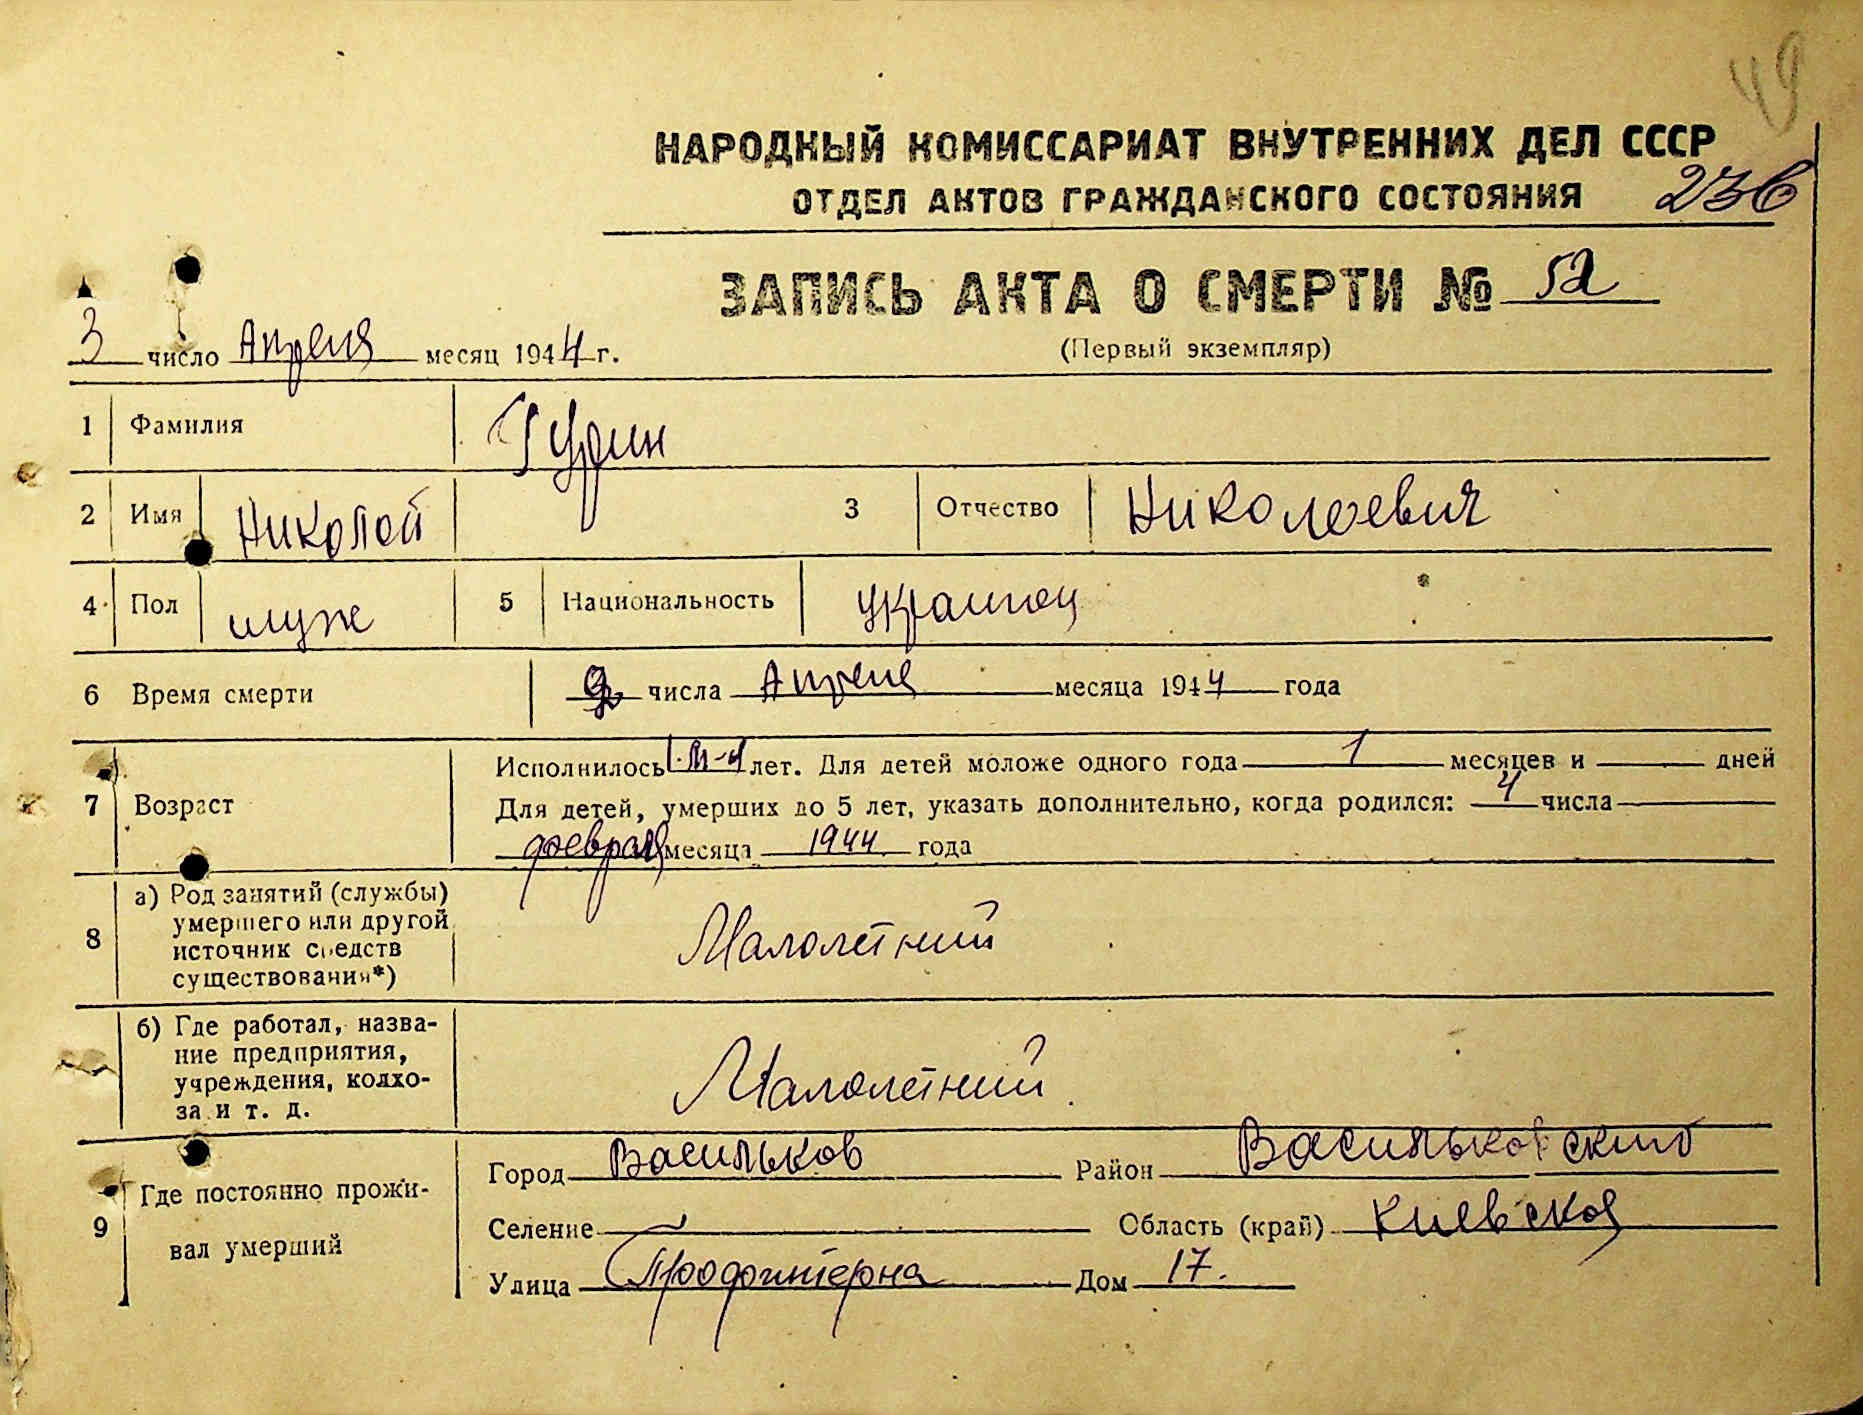 49
НАРОДНЫЙ КОМИССАРИАТ ВНУТРЕННИХ ДЕЛ СССР
ОТДЕЛ АКТОВ ГРАЖДАНСКОГО СОСТОЯНИЯ 236
ЗАПИСЬ АКТА О СМЕРТИ № 52
3 число Апреля месяц 1944 г.
(Первый экземпляр)
1 Фамилия Гурин
2 Имя Николой 3 Отчество Николоевич
4 Пол муж 5 Национальность украинец
6 Время смерти числа Апреля месяца 1944 года
7 Возраст
Исполнилось лет. Для детей моложе одного года 1 месяцев и дней
Для детей, умерших до 5 лет, указать дополнительно, когда родился: 4 числа
февраля месяца 1944 года
8 а) Род занятий (службы) умершего или другой источник средств существования*) Малолетний
б) Где работал, назва-
ние предприятия,
учреждения, колхо-
за и т. д. Малолетний
9 Где постоянно прожи-
вал умерший
Город Васильков Район Васильковский
Селение — Область (край) Киевская
Улица Профинтерна Дом 17.